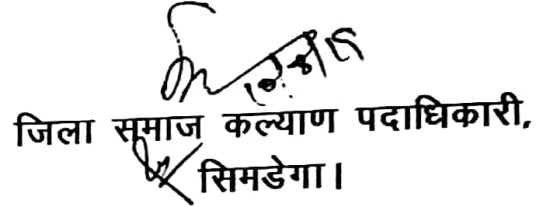 जिला समाज कल्याण पदाधिकारी,
सिमडेगा।